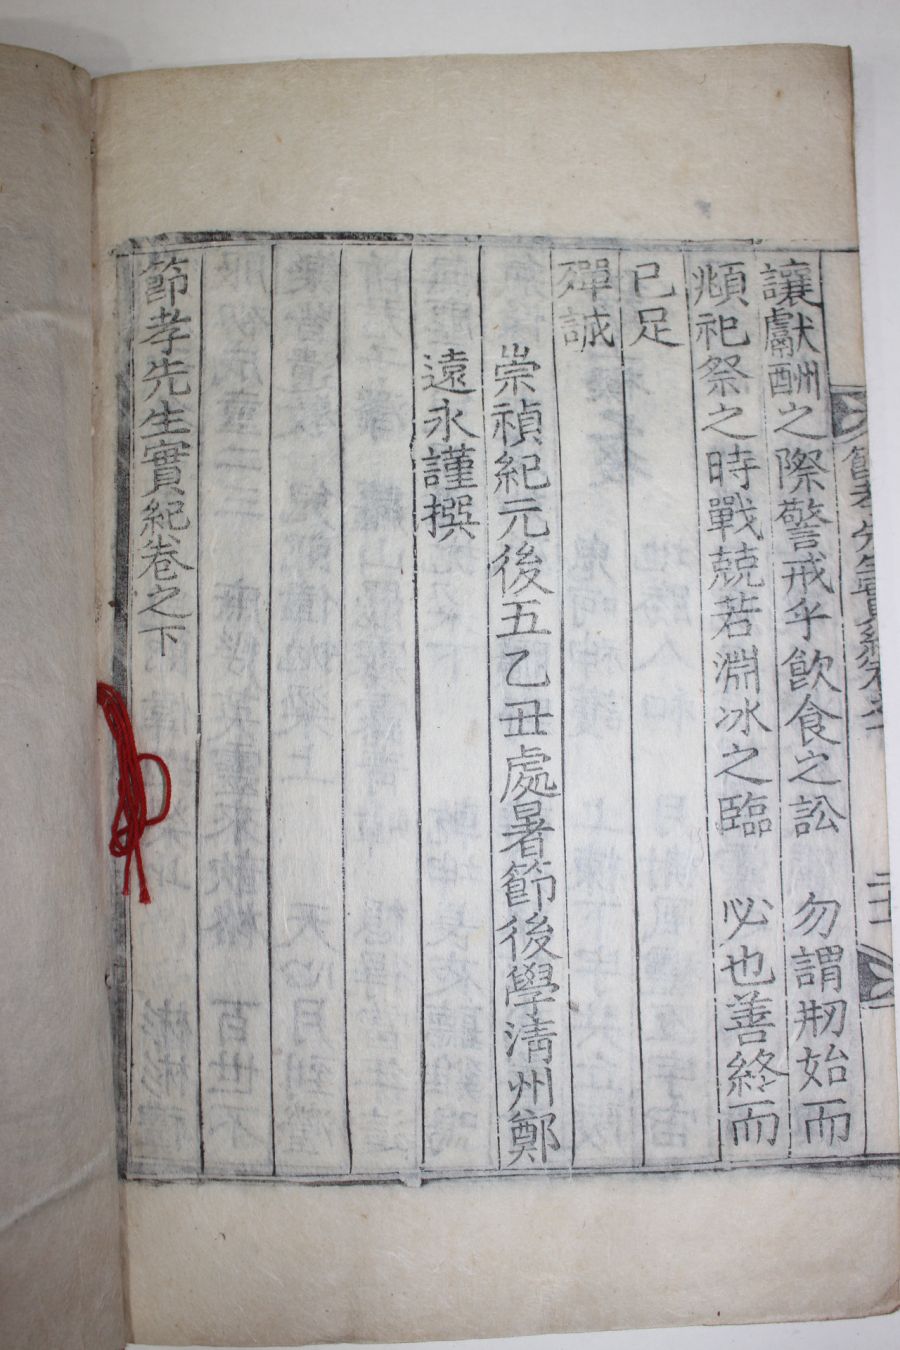 讓獻酬之際警戒乎飮食之訟 勿謂刱始而
頫祀祭之時戰兢若淵冰之臨 必也善終而
已足
殫誠
崇禎紀元後五乙丑處暑節後學淸州鄭
遠永謹撰
節孝先生實紀卷之下